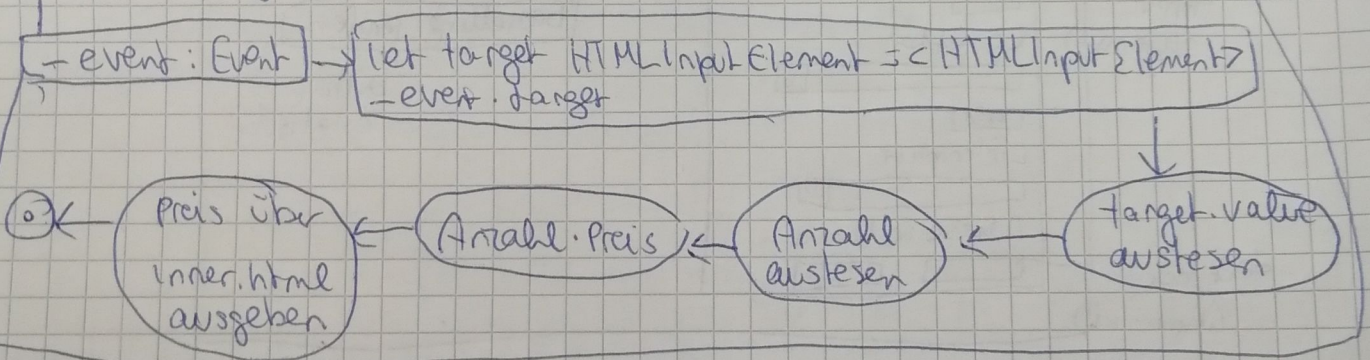 _event: Event
let target HTMLInputElement = <HTMLInputElement>
_event.target
target.value
auslesen
Anzahl
auslesen
Anzahl · Preis
Preis über
inner.html
ausgeben